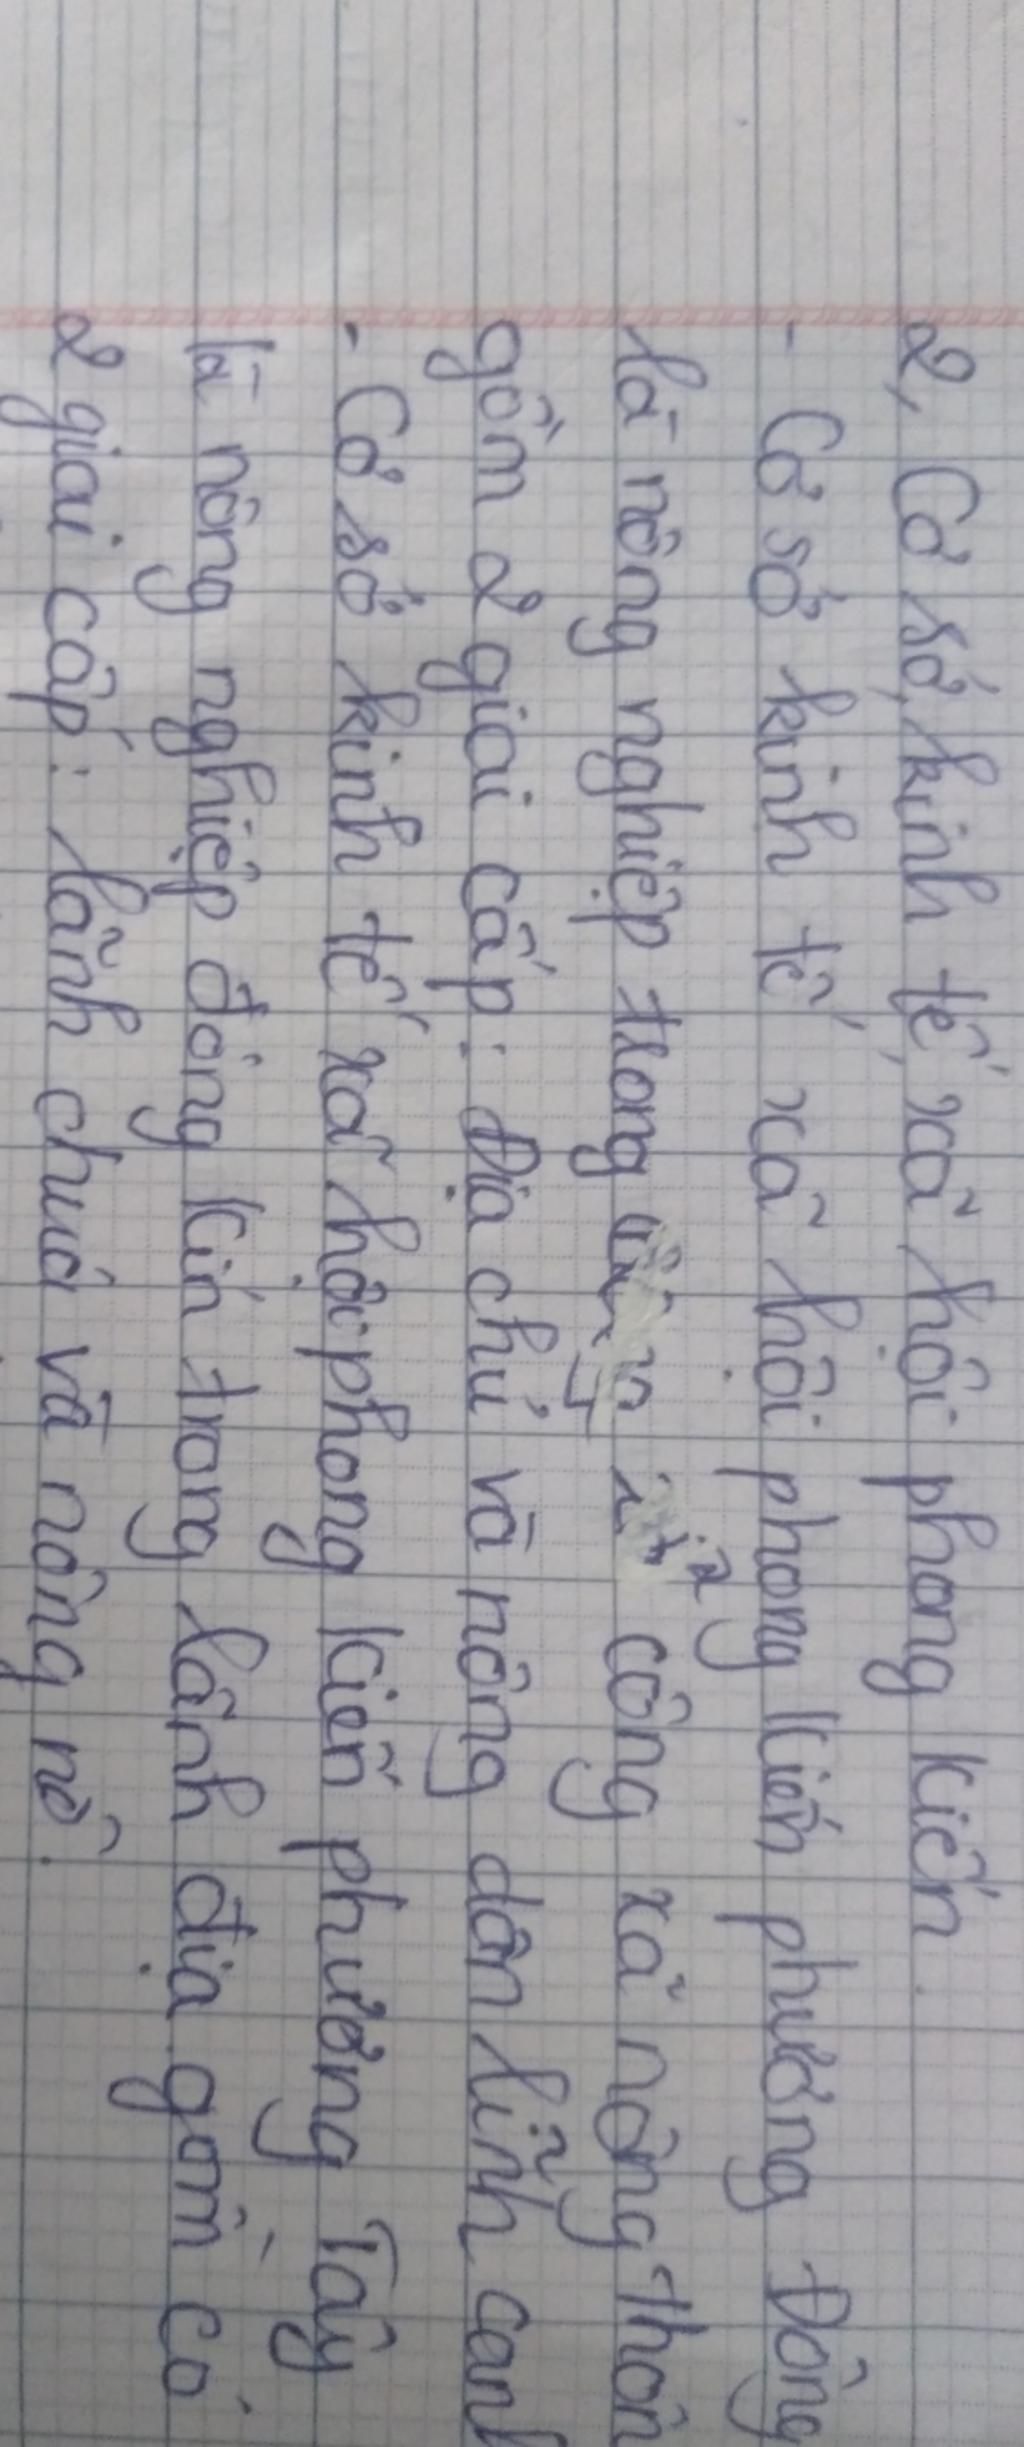 2, Cơ sở kinh tế, xã hội phong kiến.
- Cơ sở kinh tế xã hội phong kiến phương Đông
là nông nghiệp trong công xã nông thôn
gồm 2 giai cấp: Địa chủ và nông dân lĩnh canh
- Cơ sở kinh tế xã hội phong kiến phương Tây
là nông nghiệp đóng kín trong lãnh địa gồm có
2 giai cấp: lãnh chúa và nông nô.